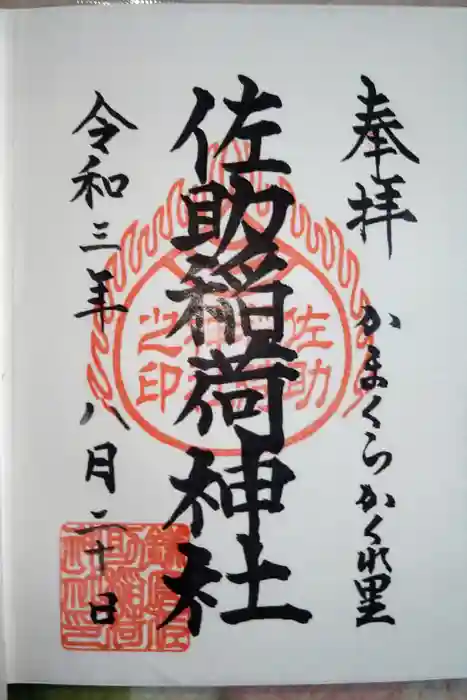 奉拝 かまくらかくれ里
佐助稲荷神社
令和三年 八月二十日
佐助
之印